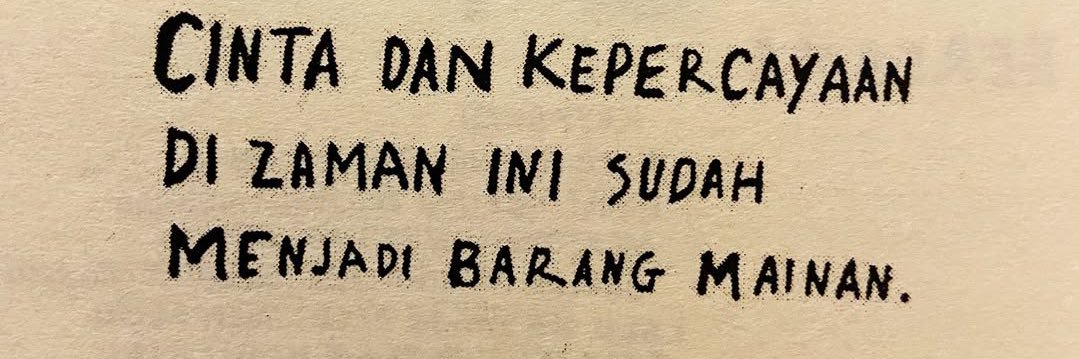 CINTA DAN KEPERCAYAAN
DI ZAMAN INI SUDAH
MENJADI BARANG MAINAN.